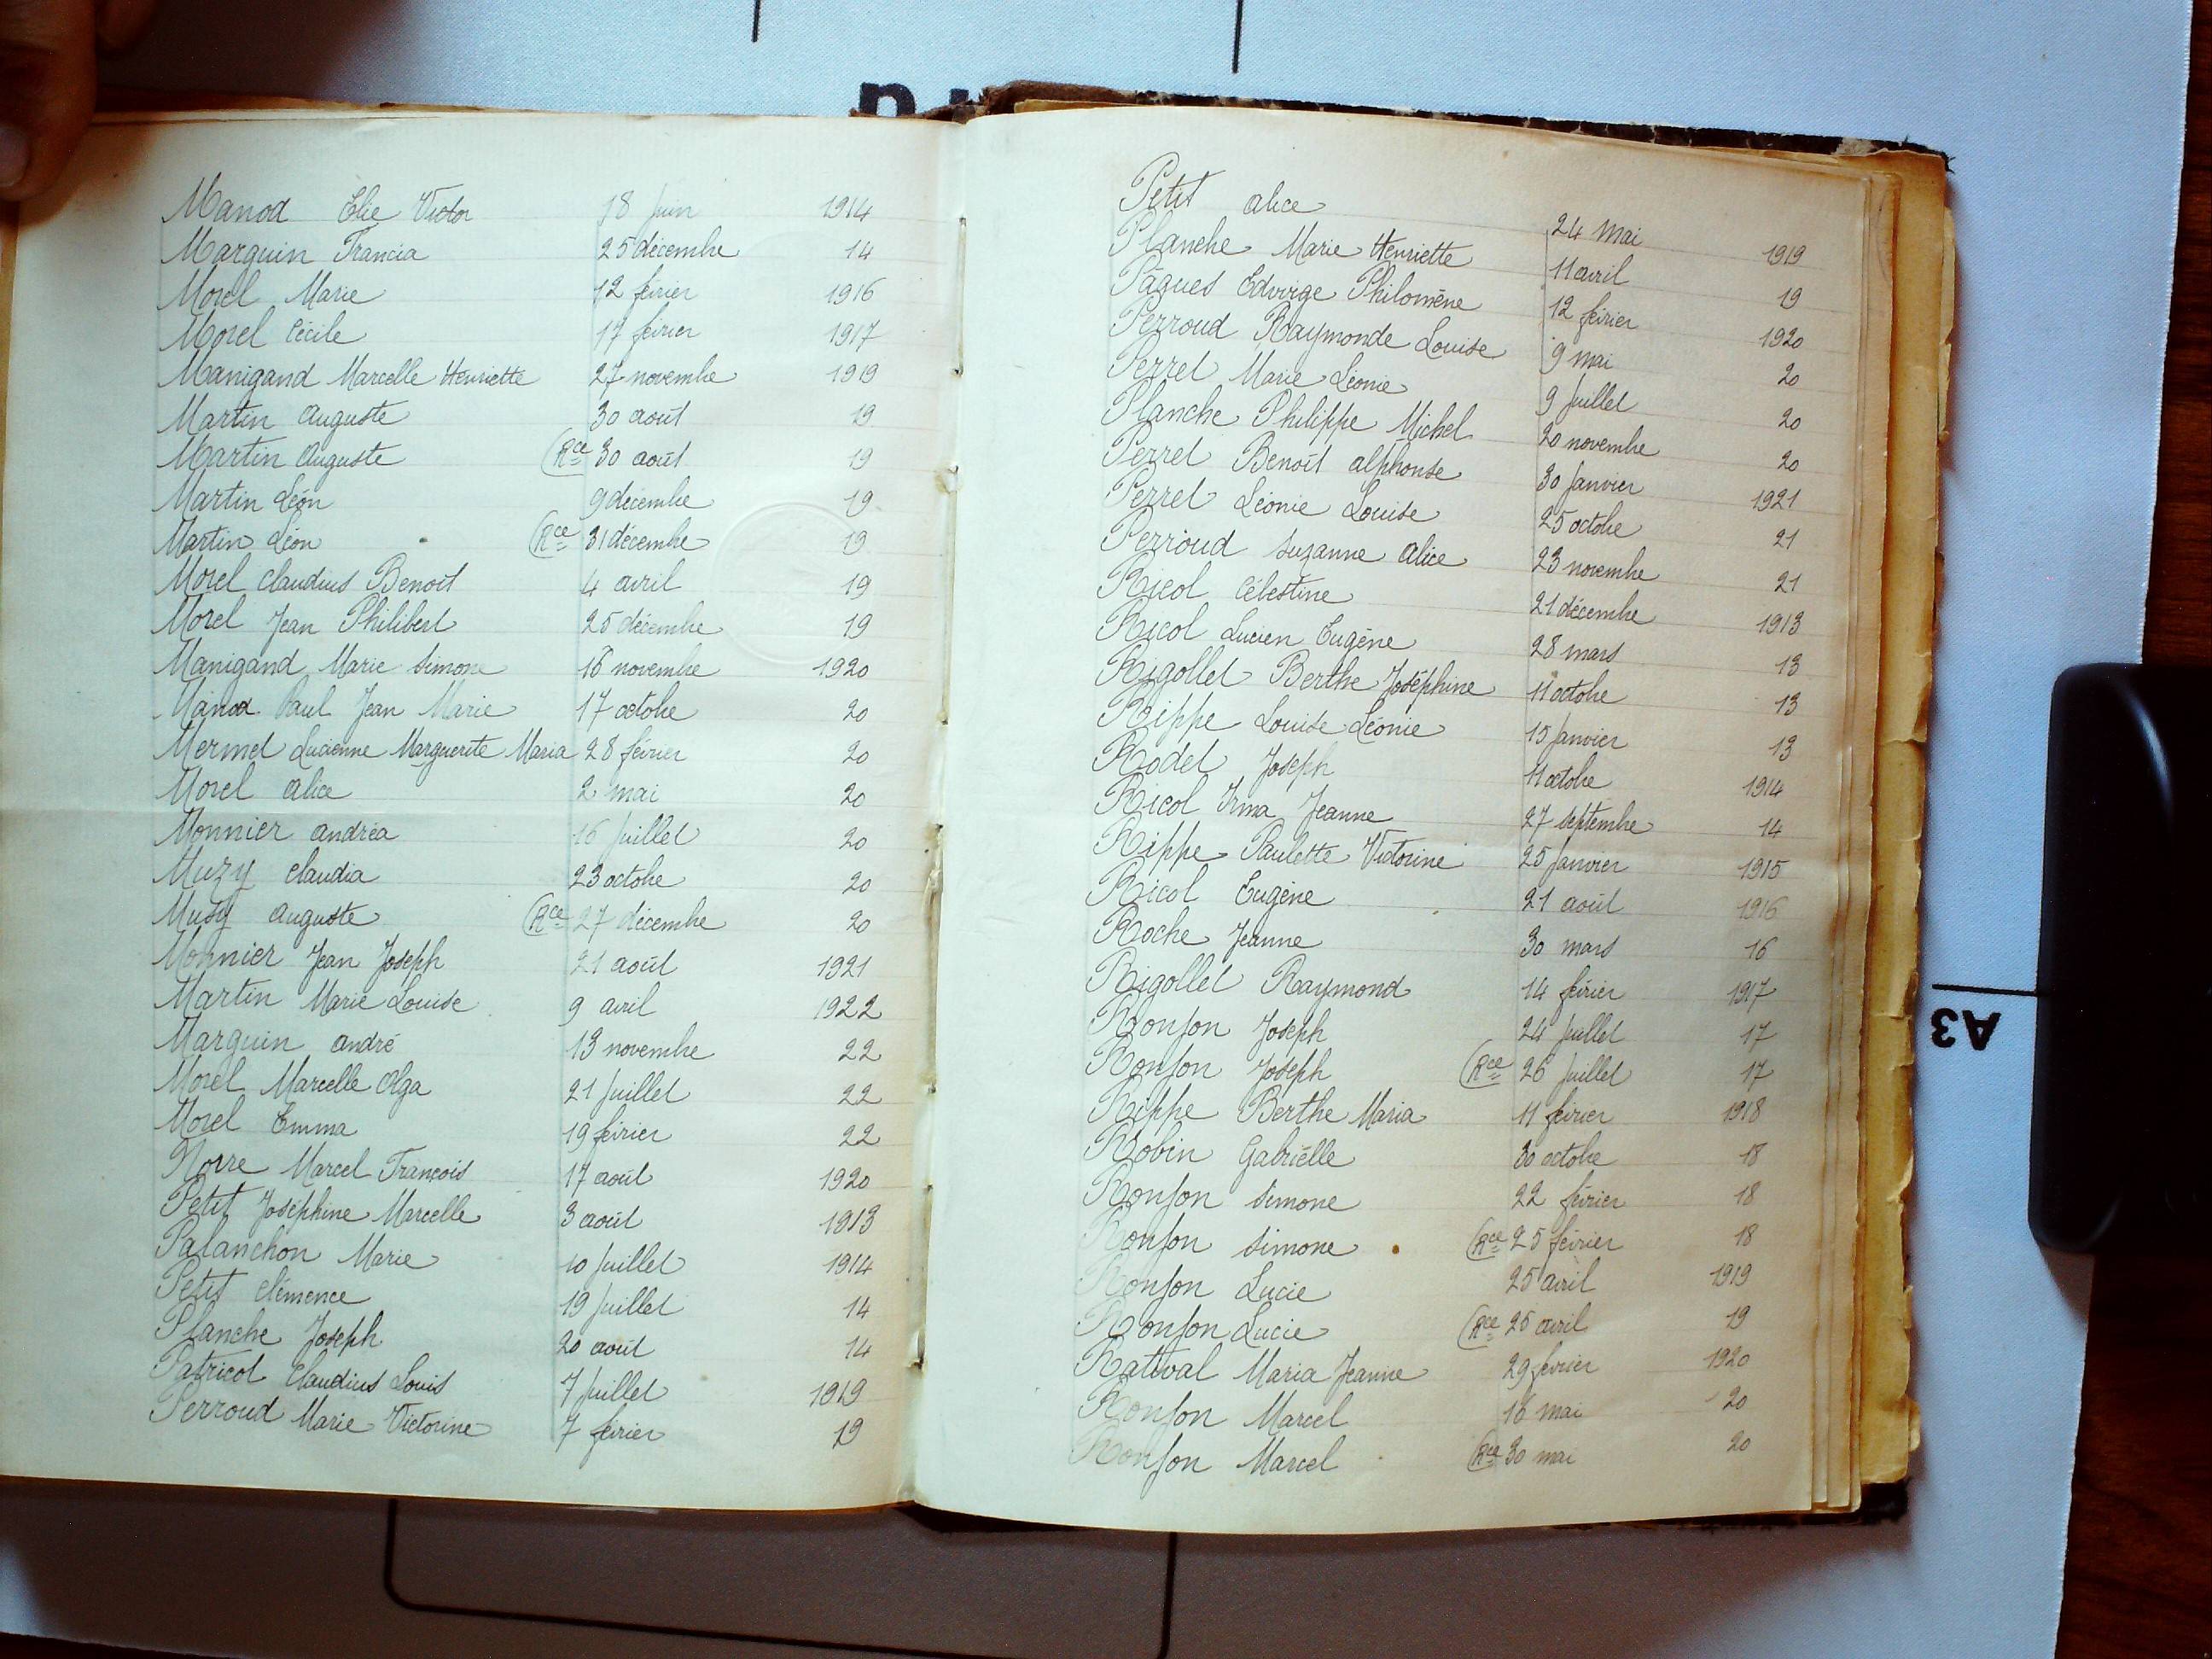 Manod Elie Victor 18 juin 1914
Marguin Francia 25 décembre 14
Morel Marie 12 février 1916
Morel Cécile 17 février 1917
Manigand Marcelle Henriette 27 novembre 1919
Martin Auguste 30 août 19
Martin Auguste (Rce 30 août 19
Martin Léon 9 décembre 19
Martin Léon (Rce 31 décembre 19
Morel Claudius Benoit 4 avril 19
Morel Jean Philibert 25 décembre 19
Manigand Marie Simone 16 novembre 1920
Manod Paul Jean Marie 17 octobre 20
Mermet Lucienne Marguerite Maria 28 février 20
Morel Alice 2 mai 20
Monnier Andréa 16 juillet 20
Muzy Claudia 23 octobre 20
Musy Auguste (Rce 27 décembre 20
Monnier Jean Joseph 21 août 1921
Martin Marie Louise 9 avril 1922
Marguin André 13 novembre 22
Morel Marcelle Olga 21 juillet 22
Morel Emma 19 février 22
Norre Marcel François 17 août 1920
Petit Joséphine Marcelle 3 août 1913
Palanchon Marie 10 juillet 1914
Petit Clémence 19 juillet 14
Planche Joseph 20 août 14
Patricot Claudius Louis 7 juillet 1919
Perroud Marie Victorine 7 février 19
Petit Alice 24 mai 1919
Planche Marie Henriette 11 avril 19
Pâques Edvirge Philomène 12 février 1920
Perroud Raymonde Louise 9 mai 20
Perret Marie Léonie 9 juillet 20
Planche Philippe Michel 20 novembre 20
Perret Benoît Alphonse 30 janvier 1921
Perret Léonie Louise 25 octobre 21
Perroud Suzanne Alice 23 novembre 21
Ricol Célestine 21 décembre 1913
Ricol Lucien Eugène 28 mars 13
Rigollet Berthe Joséphine 11 octobre 13
Rippe Louise Léonie 15 janvier 13
Rodet Joseph 11 octobre 1914
Ricol Irma Jeanne 27 septembre 14
Rippe Paulette Victorine 25 janvier 1915
Ricol Eugène 21 août 1916
Roche Jeanne 30 mars 16
Rigollet Raymond 14 février 1917
Ronjon Joseph 24 juillet 17
Ronjon Joseph (Rce 26 juillet 17
Rippe Berthe Maria 11 février 1918
Robin Gabrielle 30 octobre 18
Ronjon Simone 22 février 18
Ronjon Simone (Rce 25 février 18
Ronjon Lucie 25 avril 1919
Ronjon Lucie (Rce 25 avril 19
Rattval Maria Jeanne 29 février 1920
Ronjon Marcel 16 mai 20
Ronjon Marcel (Rce 30 mai 20
A3